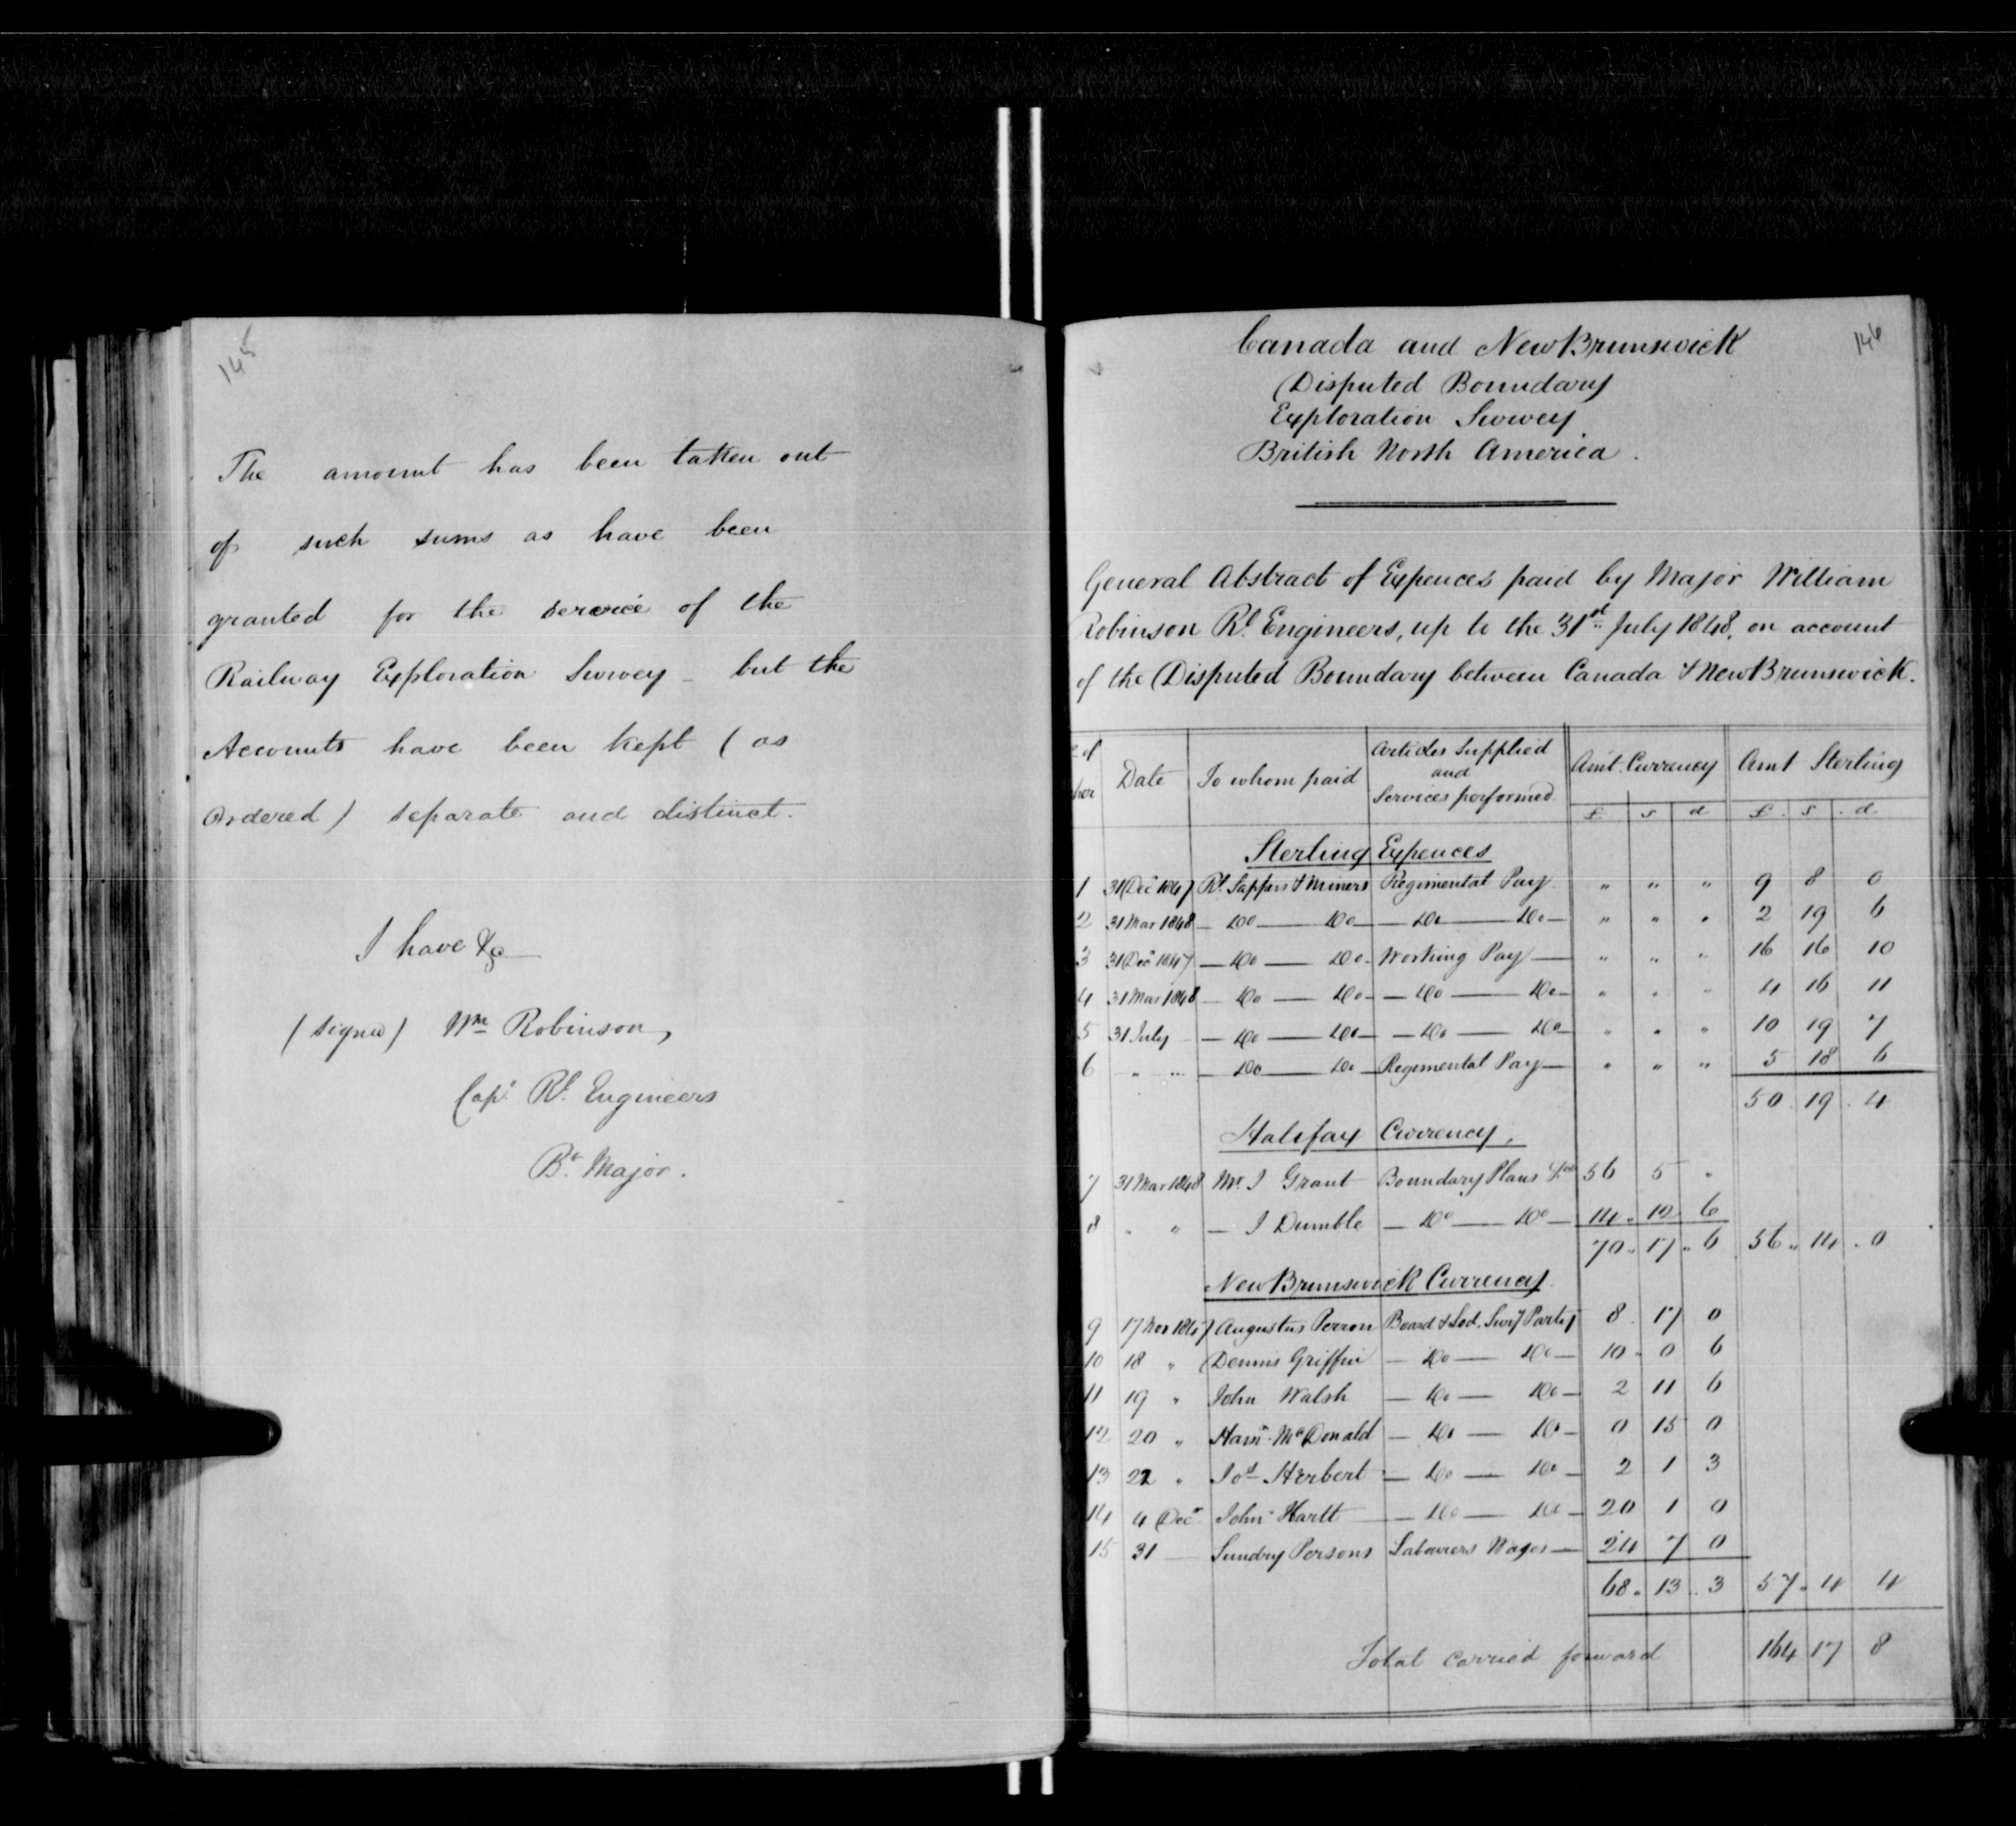 145
The amount has been taken out
of such sums as have been
granted for the service of the
Railway Exploration Survey - but the
Accounts have been kept (as
Ordered) separate and distinct.
I have &c
(signed) Wm Robinson,
Capt. Rl. Engineers
Bt. Major.
146
Canada and New Brunswick
Disputed Boundary
Exploration Survey
British North America.
General Abstract of Expences paid by Major William
Robinson Rl. Engineers, up to the 31st July 1848, on account
of the Disputed Boundary between Canada & New Brunswick.
of Date To whom paid Articles Supplied and Services performed Amt. Currency Amt Sterling
£ s d £ s d
Sterling Expences
1 31 Decr 1847 Rl. Sappers & Miners Regimental Pay " " " 9 8 0
2 31 Mar 1848 — Do — Do — — Do — Do — " " " 2 19 6
3 31 Decr 1847 — Do — Do — Working Pay — " " " 16 16 10
4 31 Mar 1848 — Do — Do — — Do — Do — " " " 4 16 11
5 31 July — Do — Do — — Do — Do — " " " 10 19 7
6 " " — Do — Do — Regimental Pay — " " " 5 18 6
50 19 4
Halifax Currency,
7 31 Mar 1848 Mr. J Grant Boundary Plans 56 5 "
8 " " — J Dumble — Do — Do — 14 12 6
70 17 6 56 14 0
New Brunswick Currency
9 17 Nov 1847 Augustus Perron Board & Lod. Survg Party 8 17 0
10 18 " Dennis Griffin — Do — Do — 10 0 6
11 19 " John Walsh — Do — Do — 2 11 6
12 20 " McDonald — Do — Do — 0 15 0
13 22 " Jos Herbert — Do — Do — 2 1 3
14 4 Decr John Hartt — Do — Do — 20 1 0
15 31 — Sundry Persons Labourers Wages — 24 7 0
68 13 3 57 4 4
Total carried forward 164 17 8